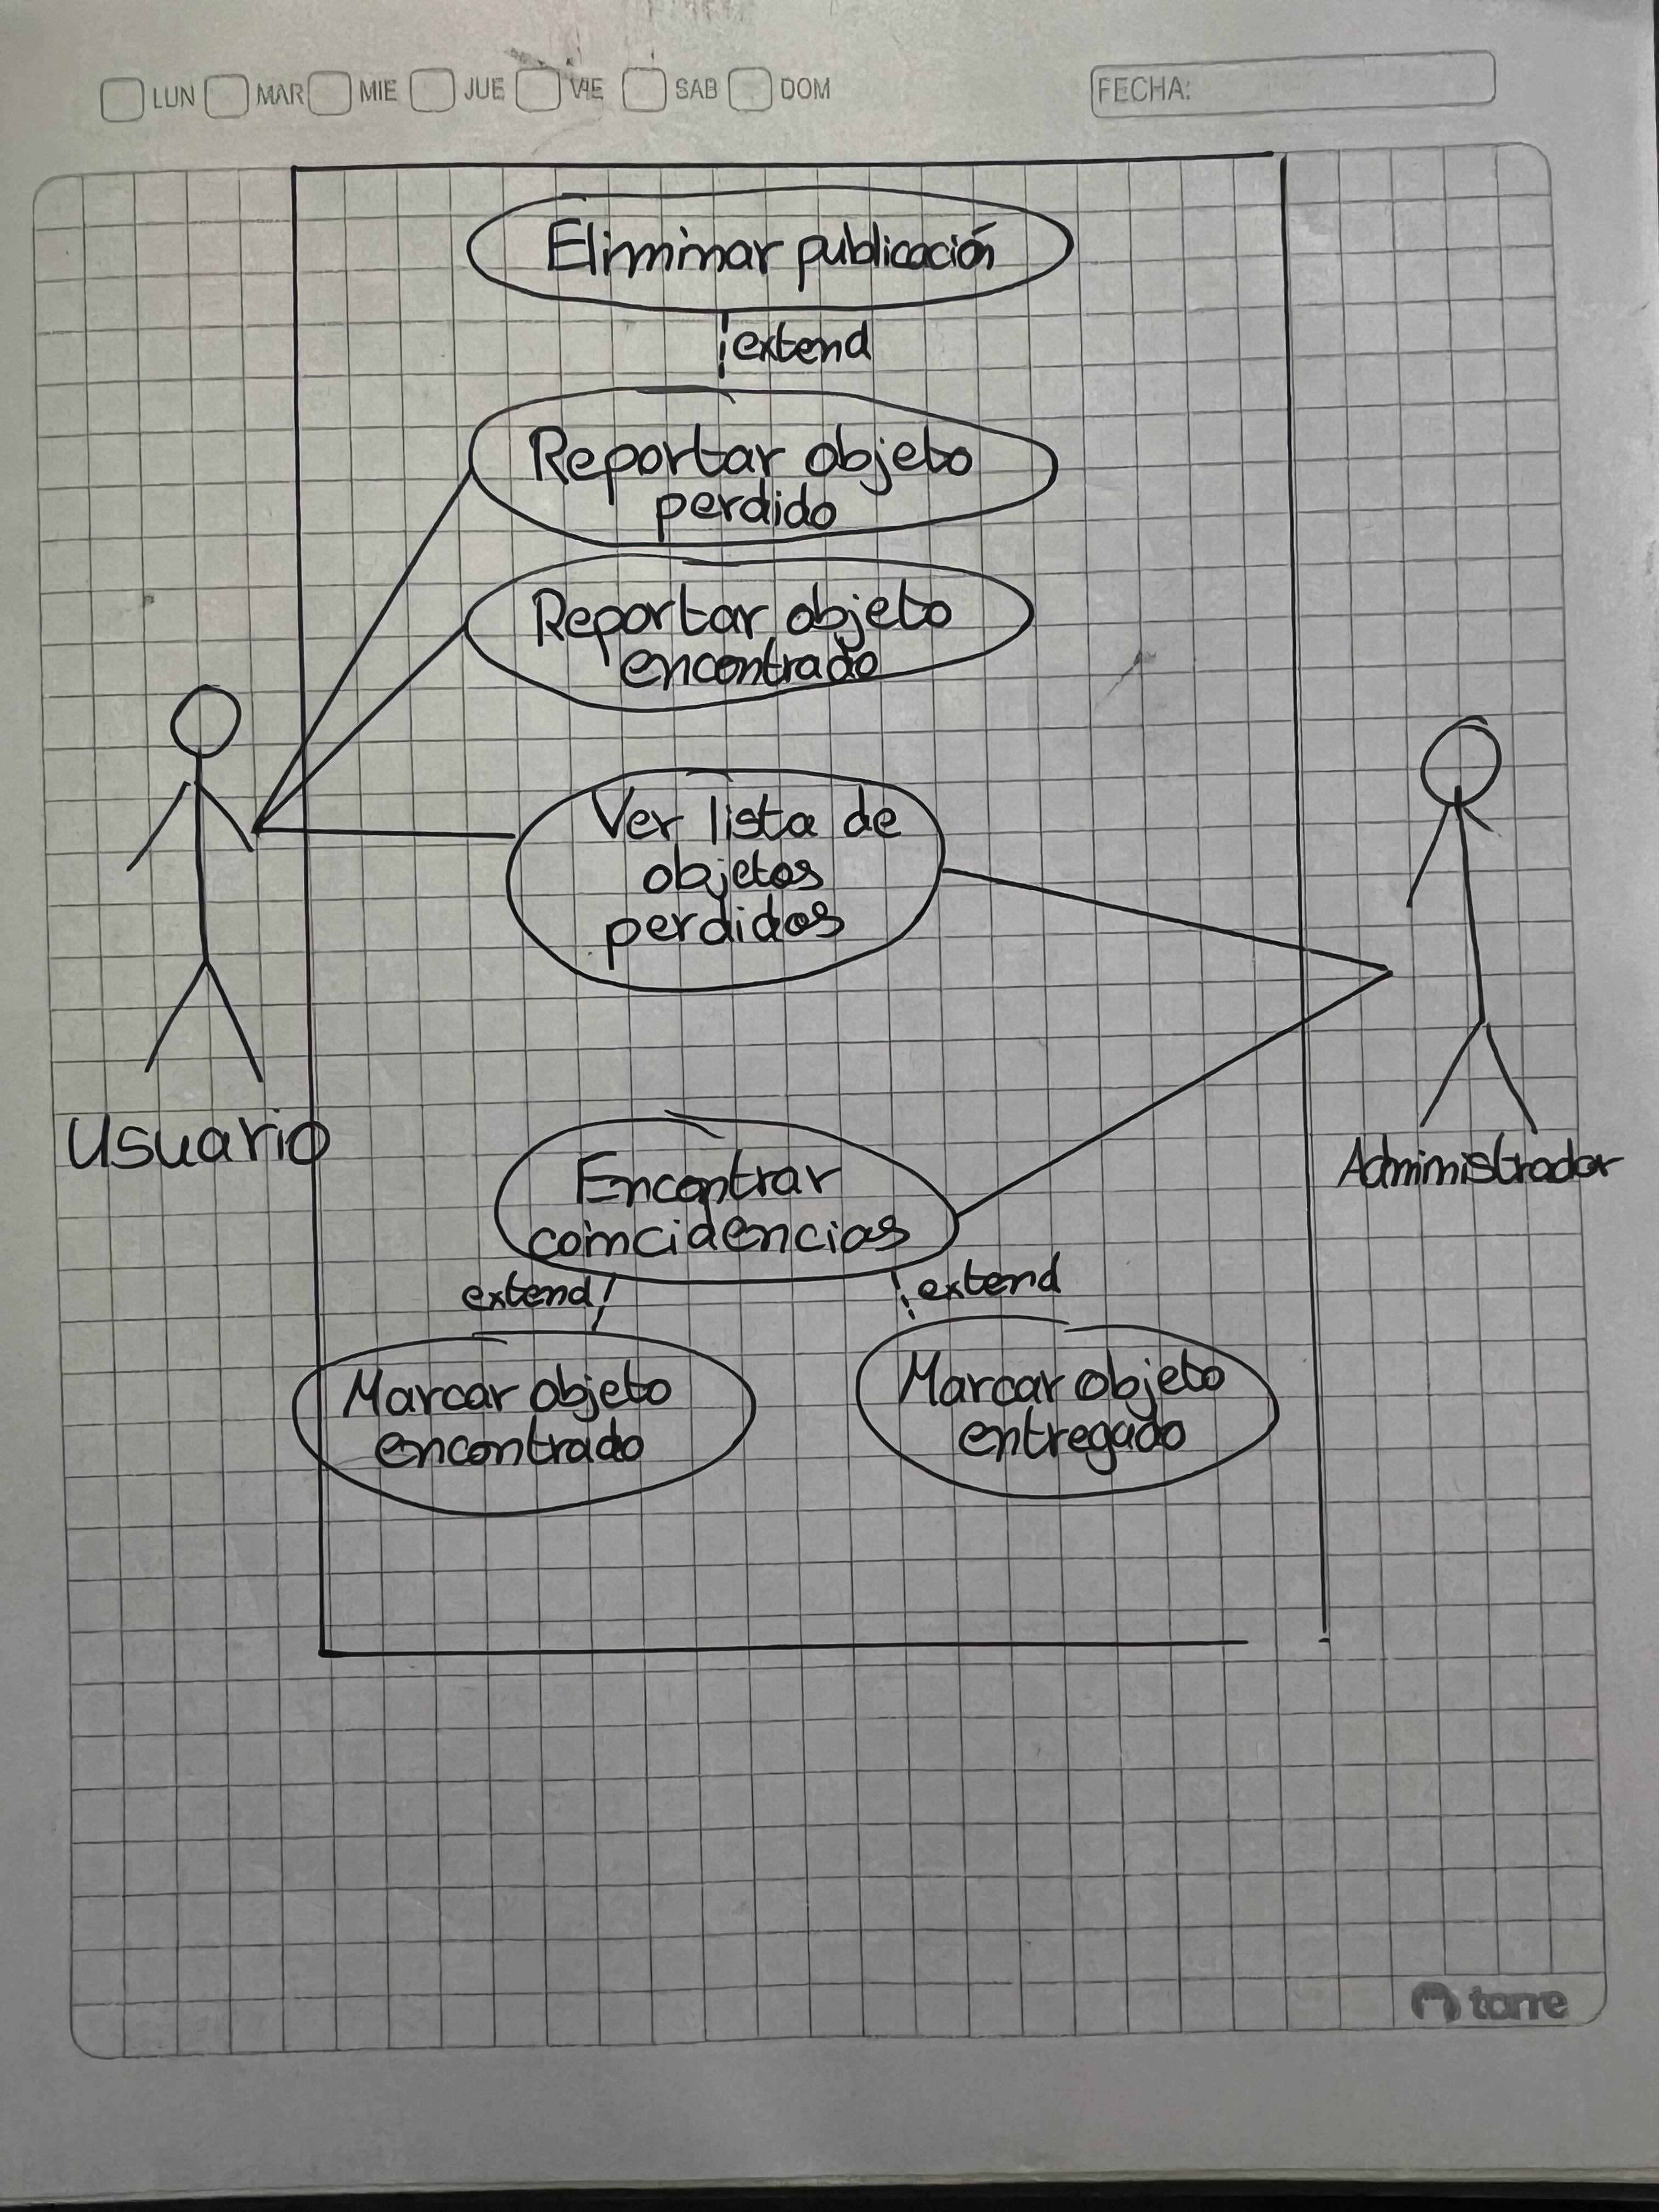 LUN MAR MIE JUE VIE SAB DOM FECHA:
Eliminar publicación
extend
Reportar objeto
perdido
Reportar objeto
encontrado
Ver lista de
objetos
perdidos
Usuario
Administrador
Encontrar
coincidencias
extend extend
Marcar objeto
encontrado
Marcar objeto
entregado
torre